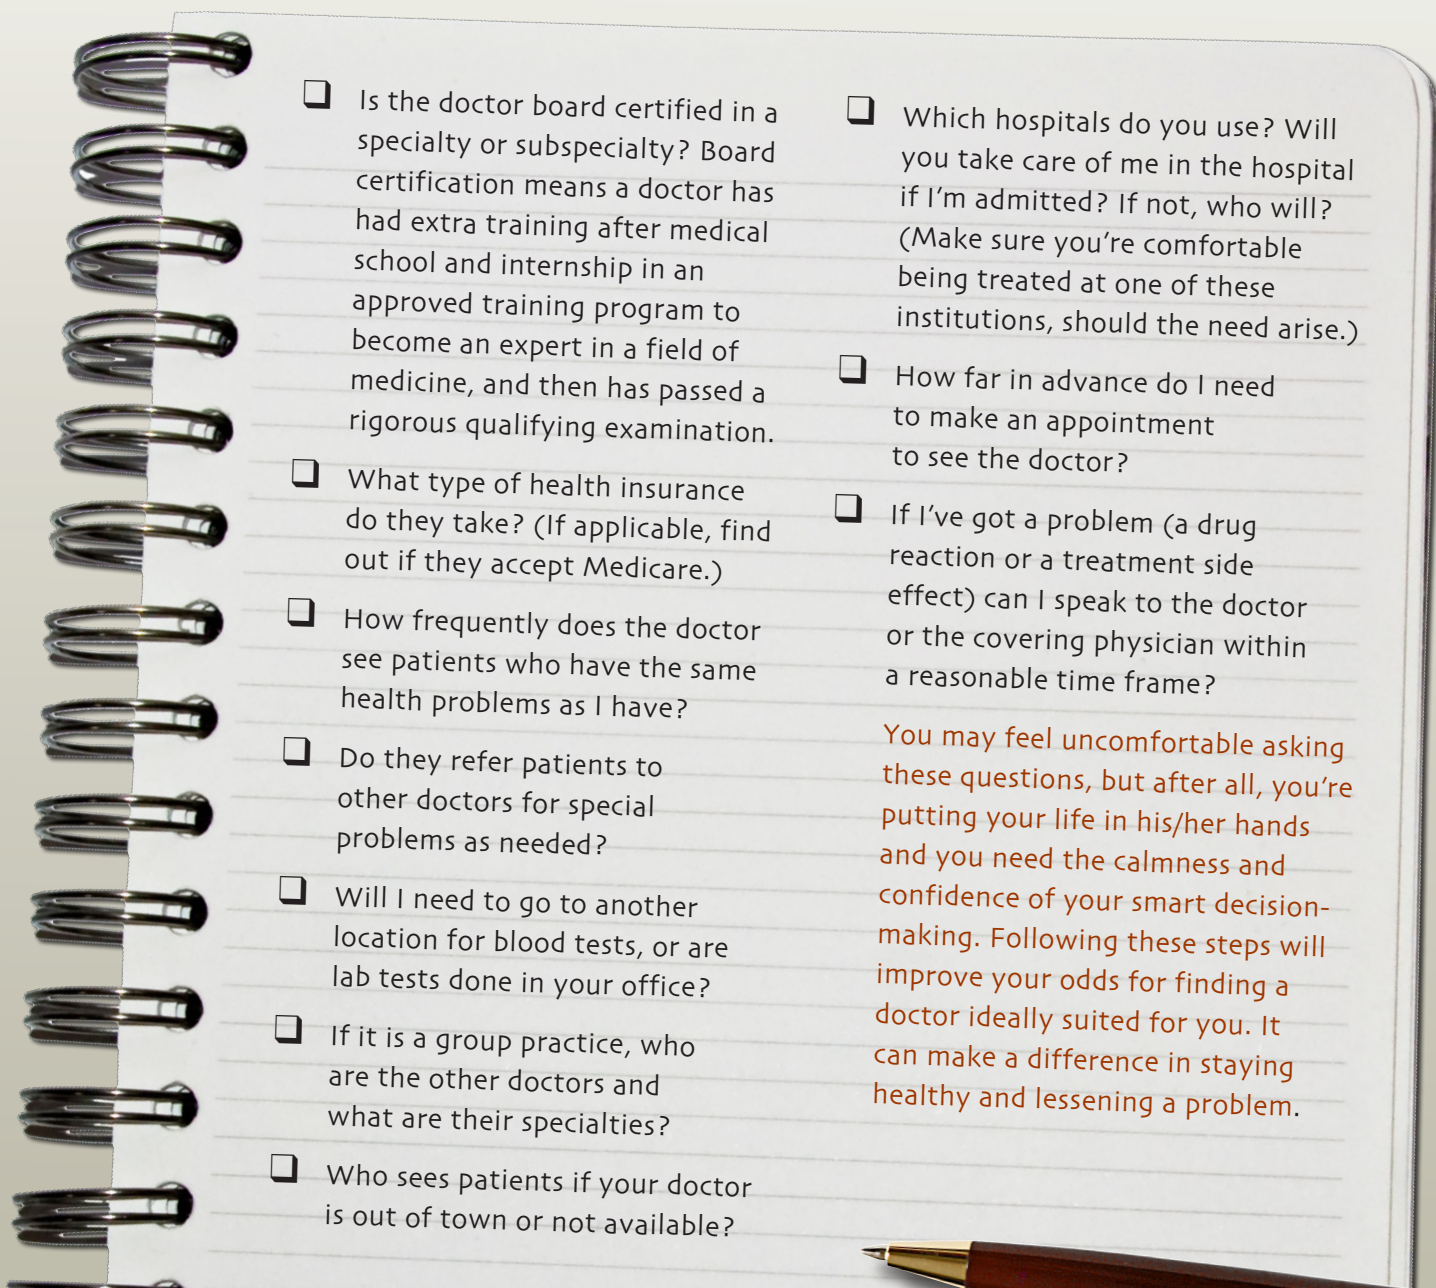 ❏ Is the doctor board certified in a
specialty or subspecialty? Board
certification means a doctor has
had extra training after medical
school and internship in an
approved training program to
become an expert in a field of
medicine, and then has passed a
rigorous qualifying examination.
❏ What type of health insurance
do they take? (If applicable, find
out if they accept Medicare.)
❏ How frequently does the doctor
see patients who have the same
health problems as I have?
❏ Do they refer patients to
other doctors for special
problems as needed?
❏ Will I need to go to another
location for blood tests, or are
lab tests done in your office?
❏ If it is a group practice, who
are the other doctors and
what are their specialties?
❏ Who sees patients if your doctor
is out of town or not available?
❏ Which hospitals do you use? Will
you take care of me in the hospital
if I'm admitted? If not, who will?
(Make sure you're comfortable
being treated at one of these
institutions, should the need arise.)
❏ How far in advance do I need
to make an appointment
to see the doctor?
❏ If I've got a problem (a drug
reaction or a treatment side
effect) can I speak to the doctor
or the covering physician within
a reasonable time frame?
You may feel uncomfortable asking
these questions, but after all, you're
putting your life in his/her hands
and you need the calmness and
confidence of your smart decision-
making. Following these steps will
improve your odds for finding a
doctor ideally suited for you. It
can make a difference in staying
healthy and lessening a problem.